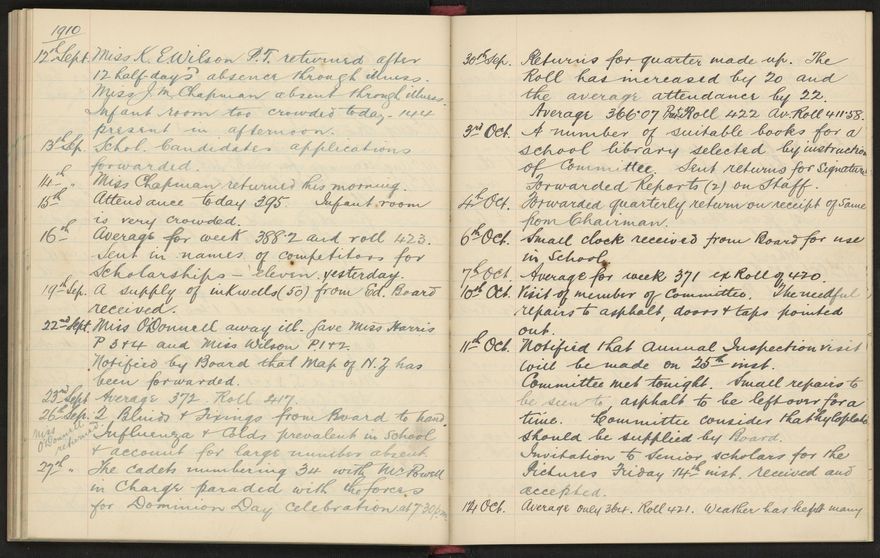 1910
12th Sept. Miss K. E. Wilson P.T. returned after
12 half days absence through illness.
Miss J. M. Chapman absent through illness.
Infant room too crowded today - 144
present in afternoon.
13th Sp. Schol. Candidates applications
forwarded.
14th " Miss Chapman returned this morning.
15th Attendance today 395. Infant room
is very crowded.
16th Average for week 388.2 and roll 423.
Sent in names of competitors for
Scholarships - eleven yesterday.
19th Sep. A supply of inkwells (50) from Ed. Board
received.
22nd Sept. Miss O'Donnell away ill. Gave Miss Harris
P 3+4 and Miss Wilson P1+2.
Notified by Board that Map of N.Z has
been forwarded.
23rd Sept Average 372. Roll 417.
26th Sep. 2 Blinds & Fixings from Board to hand.
Miss O'Donnell returned.
Influenza & Colds prevalent in School
& account for large number absent
27th " The cadets numbering 34 with Mr Powell
in Charge paraded with the forces
for Dominion Day celebration at 7.30 p.m.
30th Sep. Returns for quarter made up. The
Roll has increased by 20 and
the average attendance by 22.
Average 366.07 Roll 422 Av. Roll 411.58.
3rd Oct. A number of suitable books for a
school library selected by instruction
of Committee. Sent returns for Signature
Forwarded Reports (2) on Staff.
4th Oct. Forwarded quarterly return on receipt of same
from Chairman.
6th Oct. Small clock received from Board for use
in School
7th Oct. Average for week 371 ex Roll of 420.
10th Oct. Visit of member of Committee. The needful
repairs to asphalt, doors & taps pointed
out.
11th Oct. Notified that Annual Inspection visit
will be made on 25th inst.
Committee met tonight. Small repairs to
be seen to asphalt to be left over for a
time. Committee consider that hyloplate
should be supplied by Board.
Invitation to senior scholars for the
Pictures Friday 14th inst. received and
accepted.
14 Oct. Average only 364. Roll 421. Weather has kept many